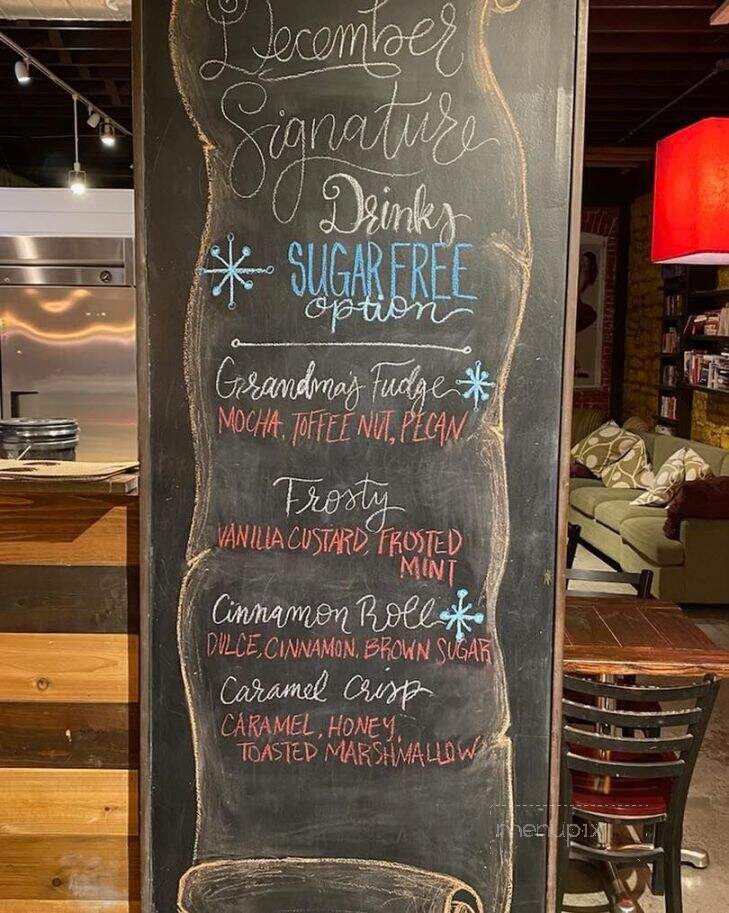 December
Signature
Drinks
SUGAR FREE
option
Grandma's Fudge
MOCHA, TOFFEE NUT, PECAN
Frosty
VANILLA CUSTARD, FROSTED
MINT
Cinnamon Roll
DULCE, CINNAMON, BROWN SUGAR
Caramel Crisp
CARAMEL, HONEY,
TOASTED MARSHMALLOW
menupix